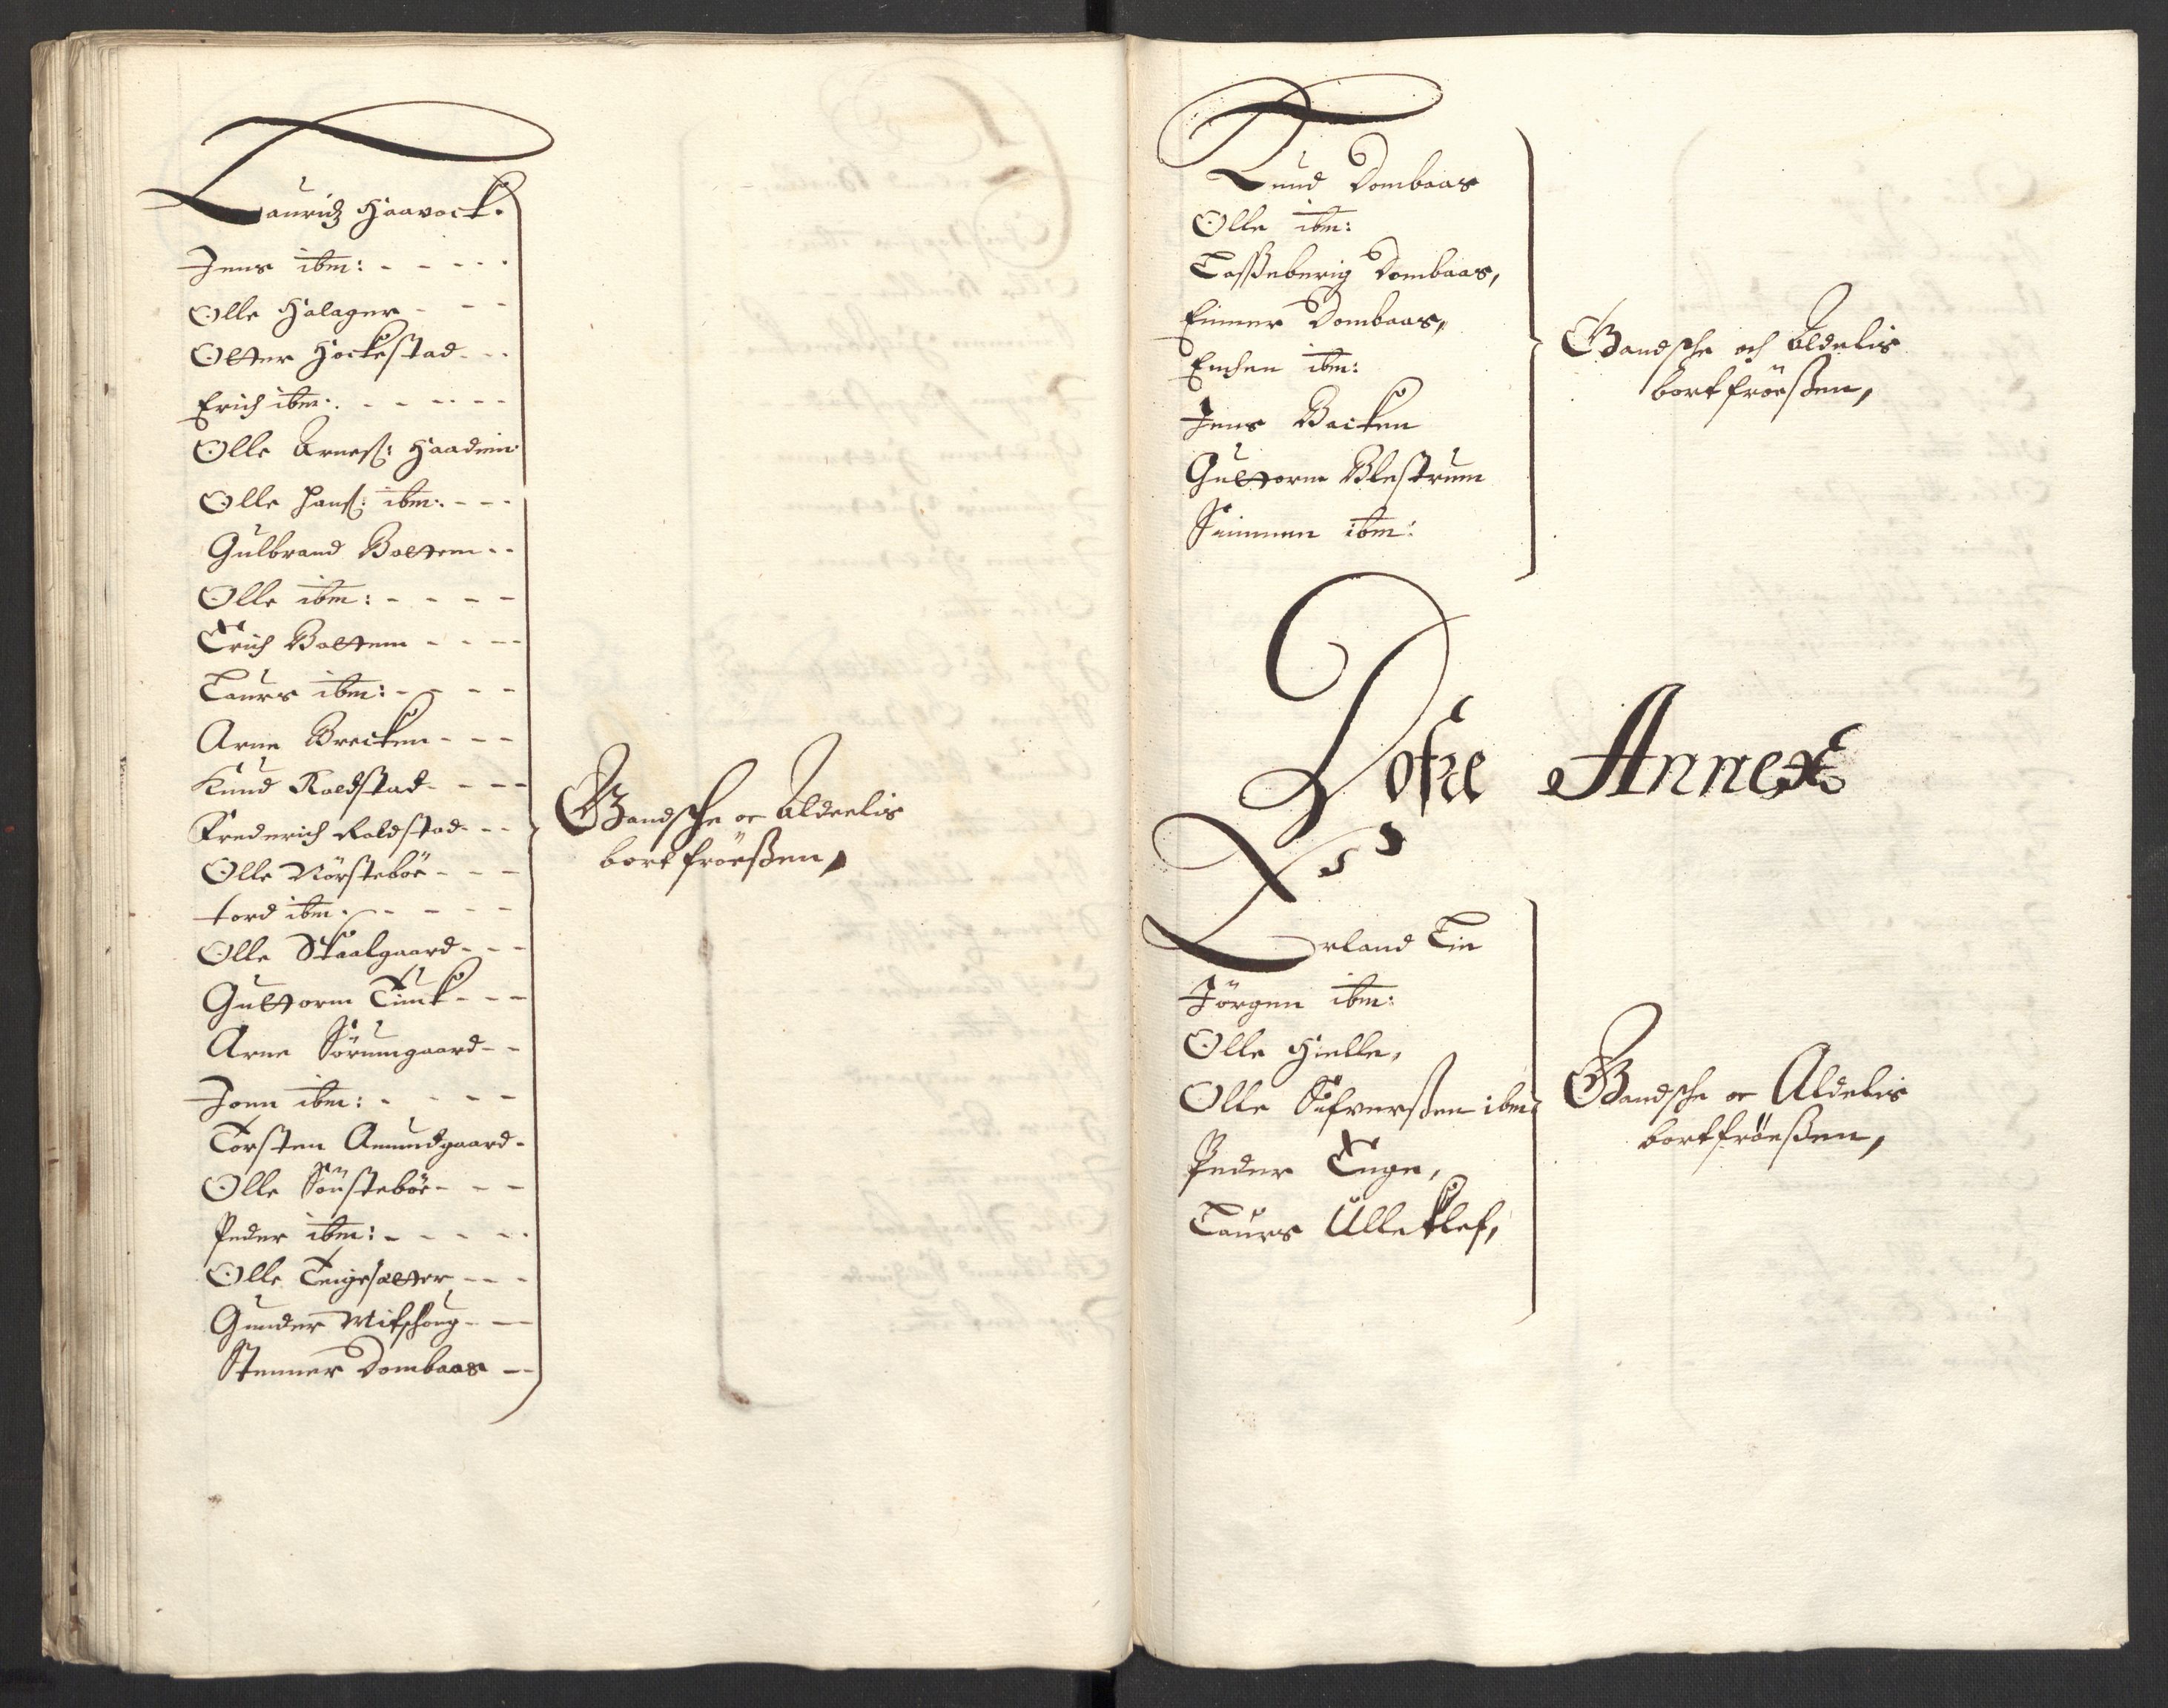 Lauridz Haavock.
Jens ibm: - - - - -
Olle Halager - - -
Otter Hockestad - -
Erich ibm: - - - - -
Olle Arness: Haadem
Olle Hanß: ibm: - - -
Gulbrand Bottem - -
Olle ibm: - - - -
Erich Bottem - - - -
Taurs ibm: - - - -
Arne Brecken - - -
Knud Roldstad - - - -
Frederich Roldstad - - -
Olle Nörsteböe - - -
tord ibm. - - - -
Olle Skaalgaard - - -
Guttorm Tiuk - - -
Arne Sörumgaard - -
Jonn ibm: - - - -
Torsten Amundgaard -
Olle Sönsteböe - - -
Peder ibm: - - - - -
Olle Teigesætter - - -
Gunder Mitschoug - -
Stenner Dombaas - -
Gandsche oc Aldeelis
bort fröeßen,
Knud Dombaas
Olle ibm:
Toßeberig Dombaas,
Einner Dombaas,
Enchen ibm:
Jens Backen
Guttorm Blestrum
Simmen ibm:
Gandsche och Aldelis
bortfröeßen,
Dofre Annex
Erland Tin
Jörgen ibm:
Olle Hielle,
Olle Sifverßen ibm
Peder Enge,
Taurs Ulleklef,
Gandsche oc Aldelis
bortfröeßen,